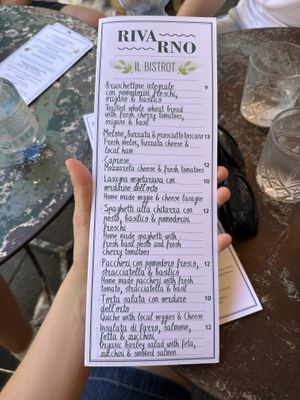 RIVA
RNO
IL BISTROT
Bruschettone integrale 9
con pomodorini freschi,
origano & basilico
Toasted whole wheat bread
with fresh cherry tomatoes,
origano & basil
Melone, burrata & prosciutto toscano 13
Fresh melon, burrata cheese &
local ham
Caprese 12
Mozzarella cheese & fresh tomatoes
Lasagna vegetariana con 10
verdure dell'orto
Home made veggie & cheese lasagne
Spaghetti alla chitarra con 12
pesto, basilico & pomodorini
freschi
Home made spaghetti with
fresh basil pesto and fresh
cherry tomatoes
Paccheri con pomodoro fresco, 12
stracciatella & basilico
Home made paccheri with fresh
tomato, stracciatella & basil
Torta salata con verdure 10
dell'orto
Quiche with local veggies & Cheese
Insalata di farro, salmone, 12
feta & zucchini
Organic barley salad with feta,
zucchini & smoked salmon